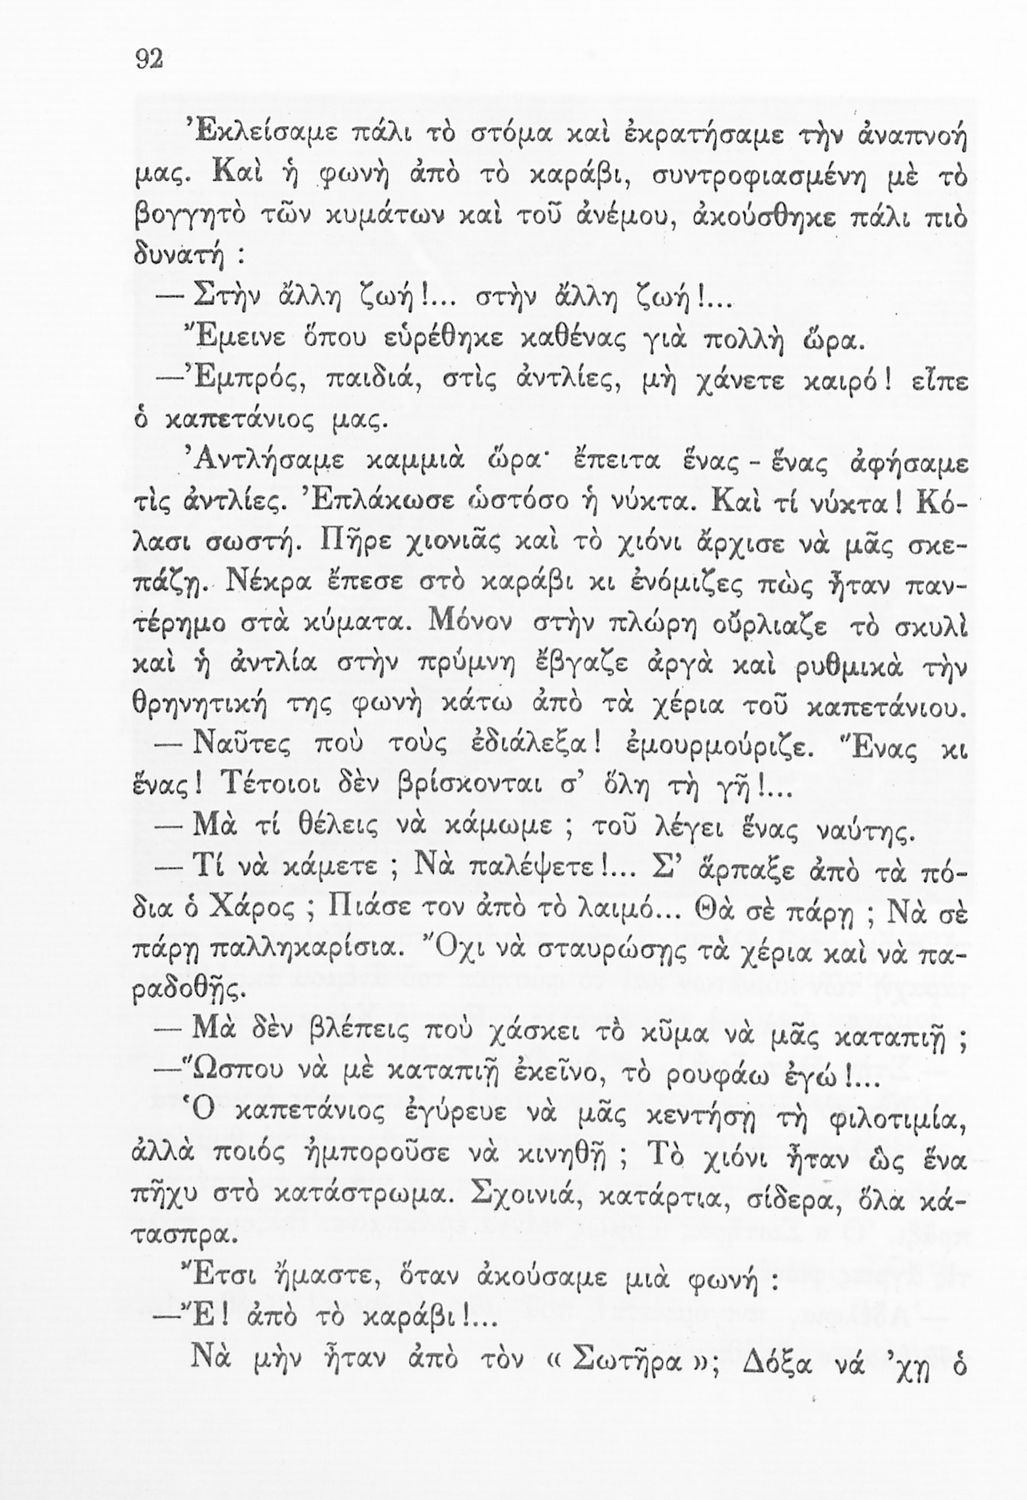 92
Ἐκλείσαμε πάλι τὸ στόμα καὶ ἐκρατήσαμε τὴν ἀναπνοή
μας. Καὶ ἡ φωνὴ ἀπὸ τὸ καράβι, συντροφιασμένη μὲ τὸ
βογγητὸ τῶν κυμάτων καὶ τοῦ ἀνέμου, ἀκούσθηκε πάλι πιὸ
δυνατή :
— Στὴν ἄλλη ζωή!... στὴν ἄλλη ζωή!...
Ἔμεινε ὅπου εὑρέθηκε καθένας γιὰ πολλὴ ὥρα.
—Ἐμπρός, παιδιά, στὶς ἀντλίες, μὴ χάνετε καιρό! εἶπε
ὁ καπετάνιος μας.
Ἀντλήσαμε καμμιὰ ὥρα· ἔπειτα ἕνας - ἕνας ἀφήσαμε
τὶς ἀντλίες. Ἐπλάκωσε ὡστόσο ἡ νύκτα. Καὶ τί νύκτα! Κό-
λασι σωστή. Πῆρε χιονιᾶς καὶ τὸ χιόνι ἄρχισε νὰ μᾶς σκε-
πάζῃ. Νέκρα ἔπεσε στὸ καράβι κι ἐνόμιζες πὼς ἦταν παν-
τέρημο στὰ κύματα. Μόνον στὴν πλώρη οὔρλιαζε τὸ σκυλὶ
καὶ ἡ ἀντλία στὴν πρύμνη ἔβγαζε ἀργὰ καὶ ρυθμικὰ τὴν
θρηνητική της φωνὴ κάτω ἀπὸ τὰ χέρια τοῦ καπετάνιου.
— Ναῦτες ποὺ τοὺς ἐδιάλεξα! ἐμουρμούριζε. Ἕνας κι
ἕνας! Τέτοιοι δὲν βρίσκονται σ’ ὅλη τὴ γῆ!...
— Μὰ τί θέλεις νὰ κάμωμε ; τοῦ λέγει ἕνας ναύτης.
— Τί νὰ κάμετε ; Νὰ παλέψετε!... Σ’ ἅρπαξε ἀπὸ τὰ πό-
δια ὁ Χάρος ; Πιάσε τον ἀπὸ τὸ λαιμό... Θὰ σὲ πάρῃ ; Νὰ σὲ
πάρῃ παλληκαρίσια. Ὄχι νὰ σταυρώσῃς τὰ χέρια καὶ νὰ πα-
ραδοθῇς.
— Μὰ δὲν βλέπεις ποὺ χάσκει τὸ κῦμα νὰ μᾶς καταπιῇ ;
—Ὥσπου νὰ μὲ καταπιῇ ἐκεῖνο, τὸ ρουφάω ἐγώ!...
Ὁ καπετάνιος ἐγύρευε νὰ μᾶς κεντήσῃ τὴ φιλοτιμία,
ἀλλὰ ποιός ἠμποροῦσε νὰ κινηθῇ ; Τὸ χιόνι ἦταν ὣς ἕνα
πῆχυ στὸ κατάστρωμα. Σχοινιά, κατάρτια, σίδερα, ὅλα κά-
τασπρα.
Ἔτσι ἤμαστε, ὅταν ἀκούσαμε μιὰ φωνή :
—Ἔ! ἀπὸ τὸ καράβι!...
Νὰ μὴν ἦταν ἀπὸ τὸν « Σωτῆρα »; Δόξα νά ’χῃ ὁ